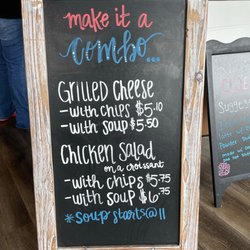 make it a
combo...
Grilled Cheese
-with chips $5.10
-with soup $5.50
Chicken Salad
on a croissant
-with chips $5.75
-with soup $6.75
*Soup starts @ 11
Sugges